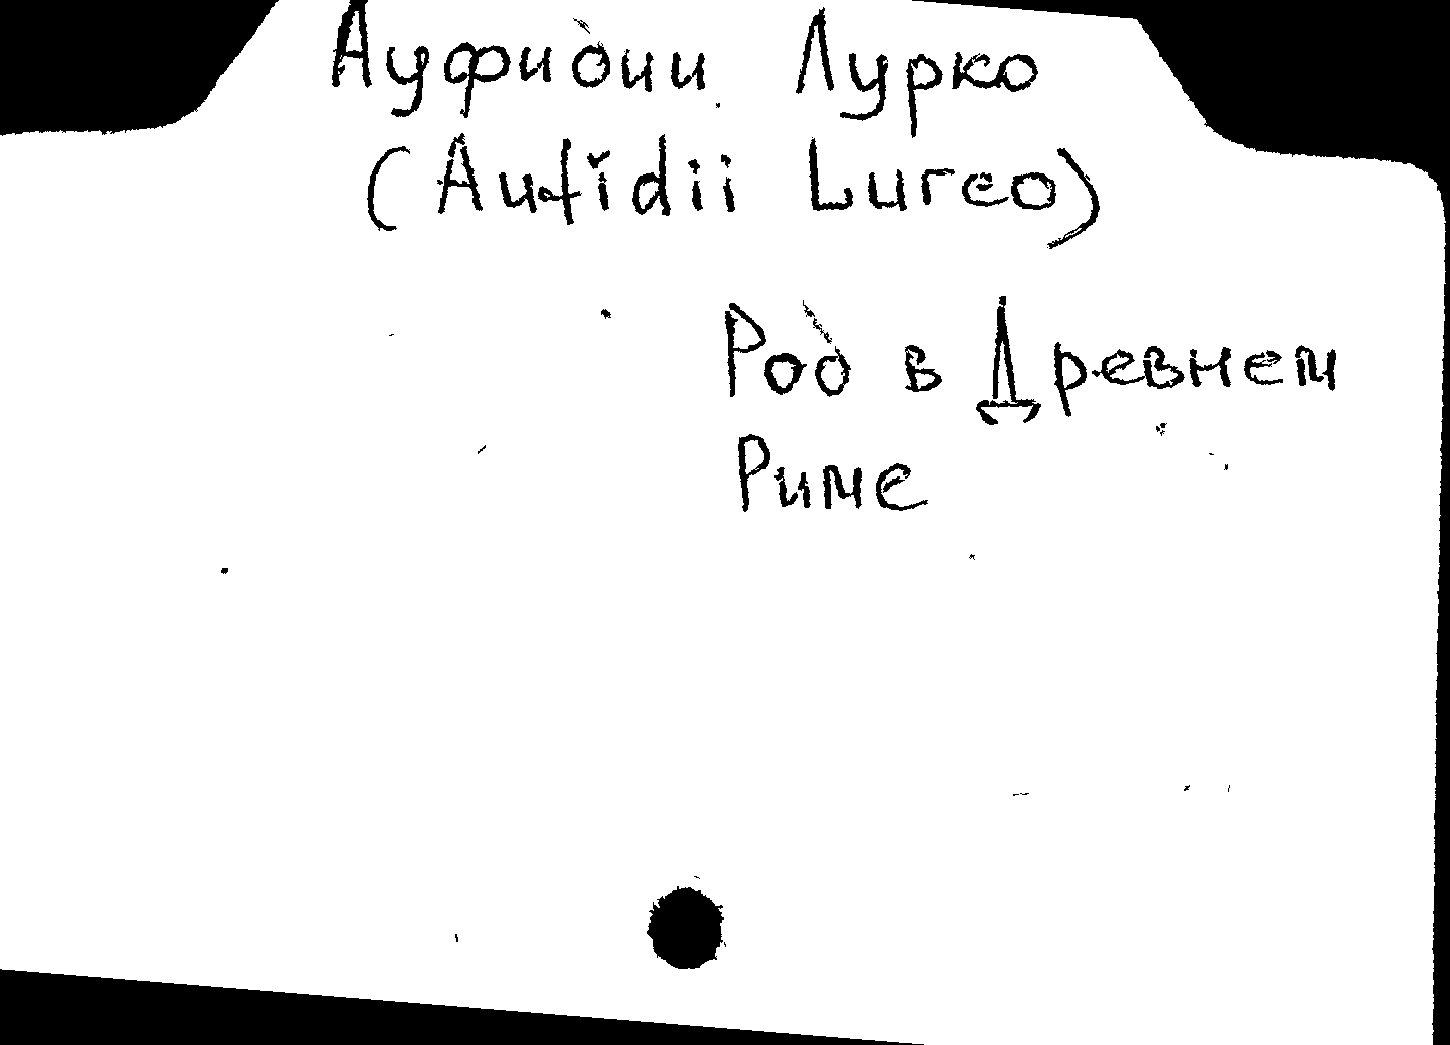 Ауфидии Лурко
(Aufidii Lurco)
Род в Древнем
Риме